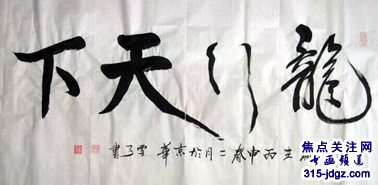 龍行天下
生丙申春二月於京華雪子書
焦点关注网
书画频道
315-jdgz.com